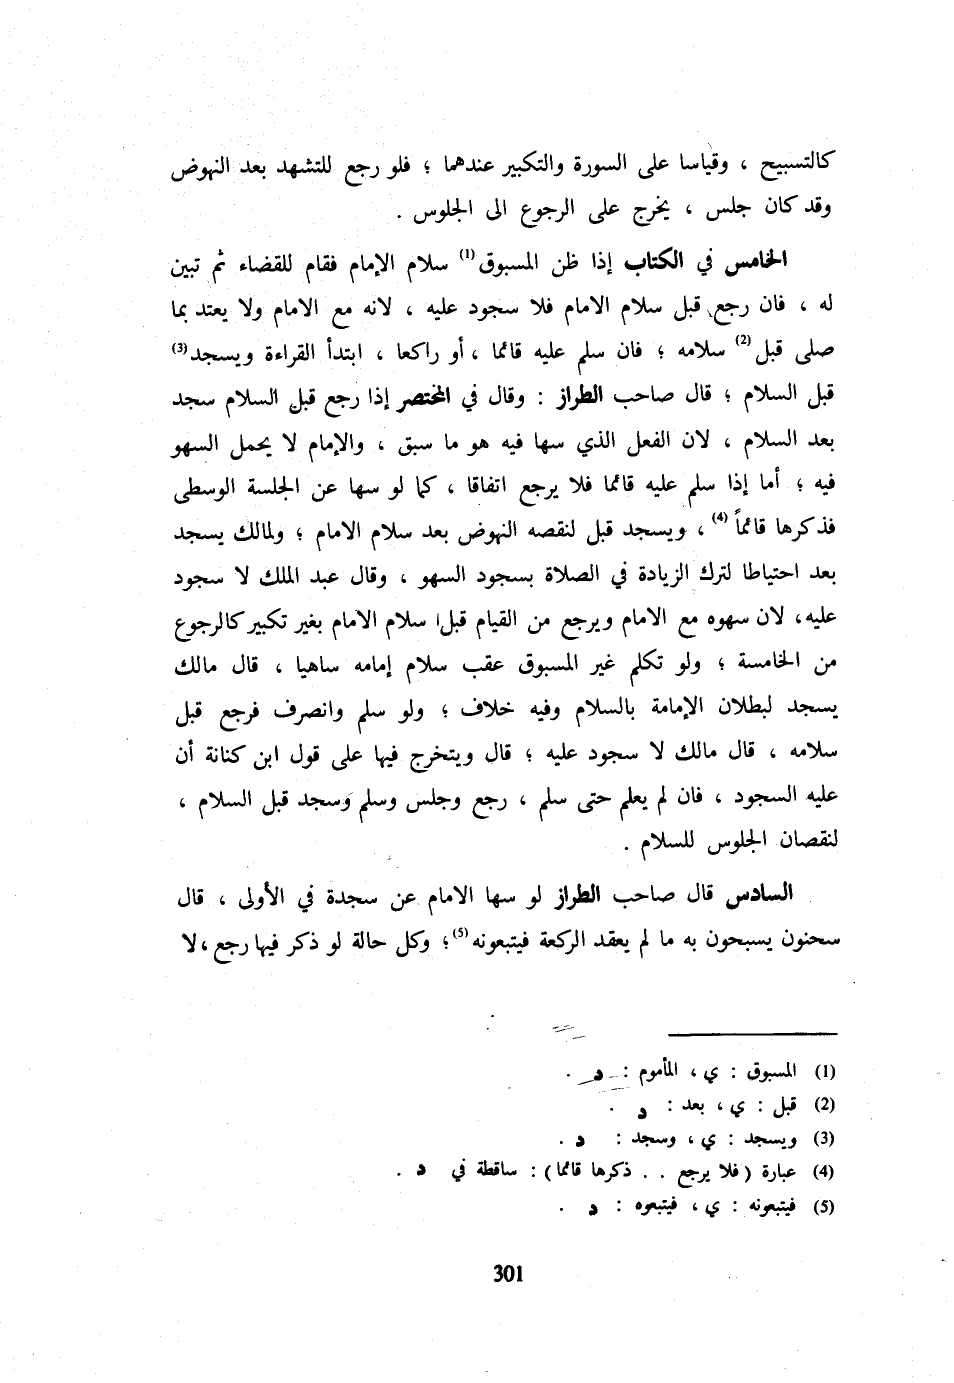 كالتسبيح ، وقياسا على السورة والتكبير عندهما ؛ فلو رجع للتشهد بعد النهوض
وقد كان جلس ، يخرج على الرجوع الى الجلوس .
الخامس في الكتاب إذا ظن المسبوق(1) سلام الإمام فقام للقضاء ثم تبين
له ، فان رجع قبل سلام الامام فلا سجود عليه ، لانه مع الامام ولا يعتد بما
صلى قبل(2) سلامه ؛ فان سلم عليه قائما ، أو راكعا ، ابتدأ القراءة ويسجد(3)
قبل السلام ؛ قال صاحب الطراز : وقال في المختصر إذا رجع قبل السلام سجد
بعد السلام ، لان الفعل الذي سها فيه هو ما سبق ، والإمام لا يحمل السهو
فيه ؛ أما إذا سلم عليه قائما فلا يرجع اتفاقا ، كما لو سها عن الجلسة الوسطى
فذكرها قائماً(4) ، ويسجد قبل لنقصه النهوض بعد سلام الامام ؛ ولمالك يسجد
بعد احتياطا لترك الزيادة في الصلاة بسجود السهو ، وقال عبد الملك لا سجود
عليه، لان سهوه مع الامام ويرجع من القيام قبل سلام الامام بغير تكبير كالرجوع
من الخامسة ؛ ولو تكلم غير المسبوق عقب سلام إمامه ساهيا ، قال مالك
يسجد لبطلان الإمامة بالسلام وفيه خلاف ؛ ولو سلم وانصرف فرجع قبل
سلامه ، قال مالك لا سجود عليه ؛ قال ويتخرج فيها على قول ابن كنانة أن
عليه السجود ، فان لم يعلم حتى سلم ، رجع وجلس وسلم وسجد قبل السلام ،
لنقصان الجلوس للسلام .
السادس قال صاحب الطراز لو سها الامام عن سجدة في الأولى ، قال
سحنون يسبحون به ما لم يعقد الركعة فيتبعونه(5)؛ وكل حالة لو ذكر فيها رجع ، لا
(1) المسبوق : ي ، المأموم : د .
(2) قبل : ي ، بعد : د .
(3) ويسجد : ي ، وسجد : د .
(4) عبارة (فلا يرجع . . ذكرها قائما) : ساقطة في د .
(5) فيتبعونه : ي ، فيتبعوه : د .
301